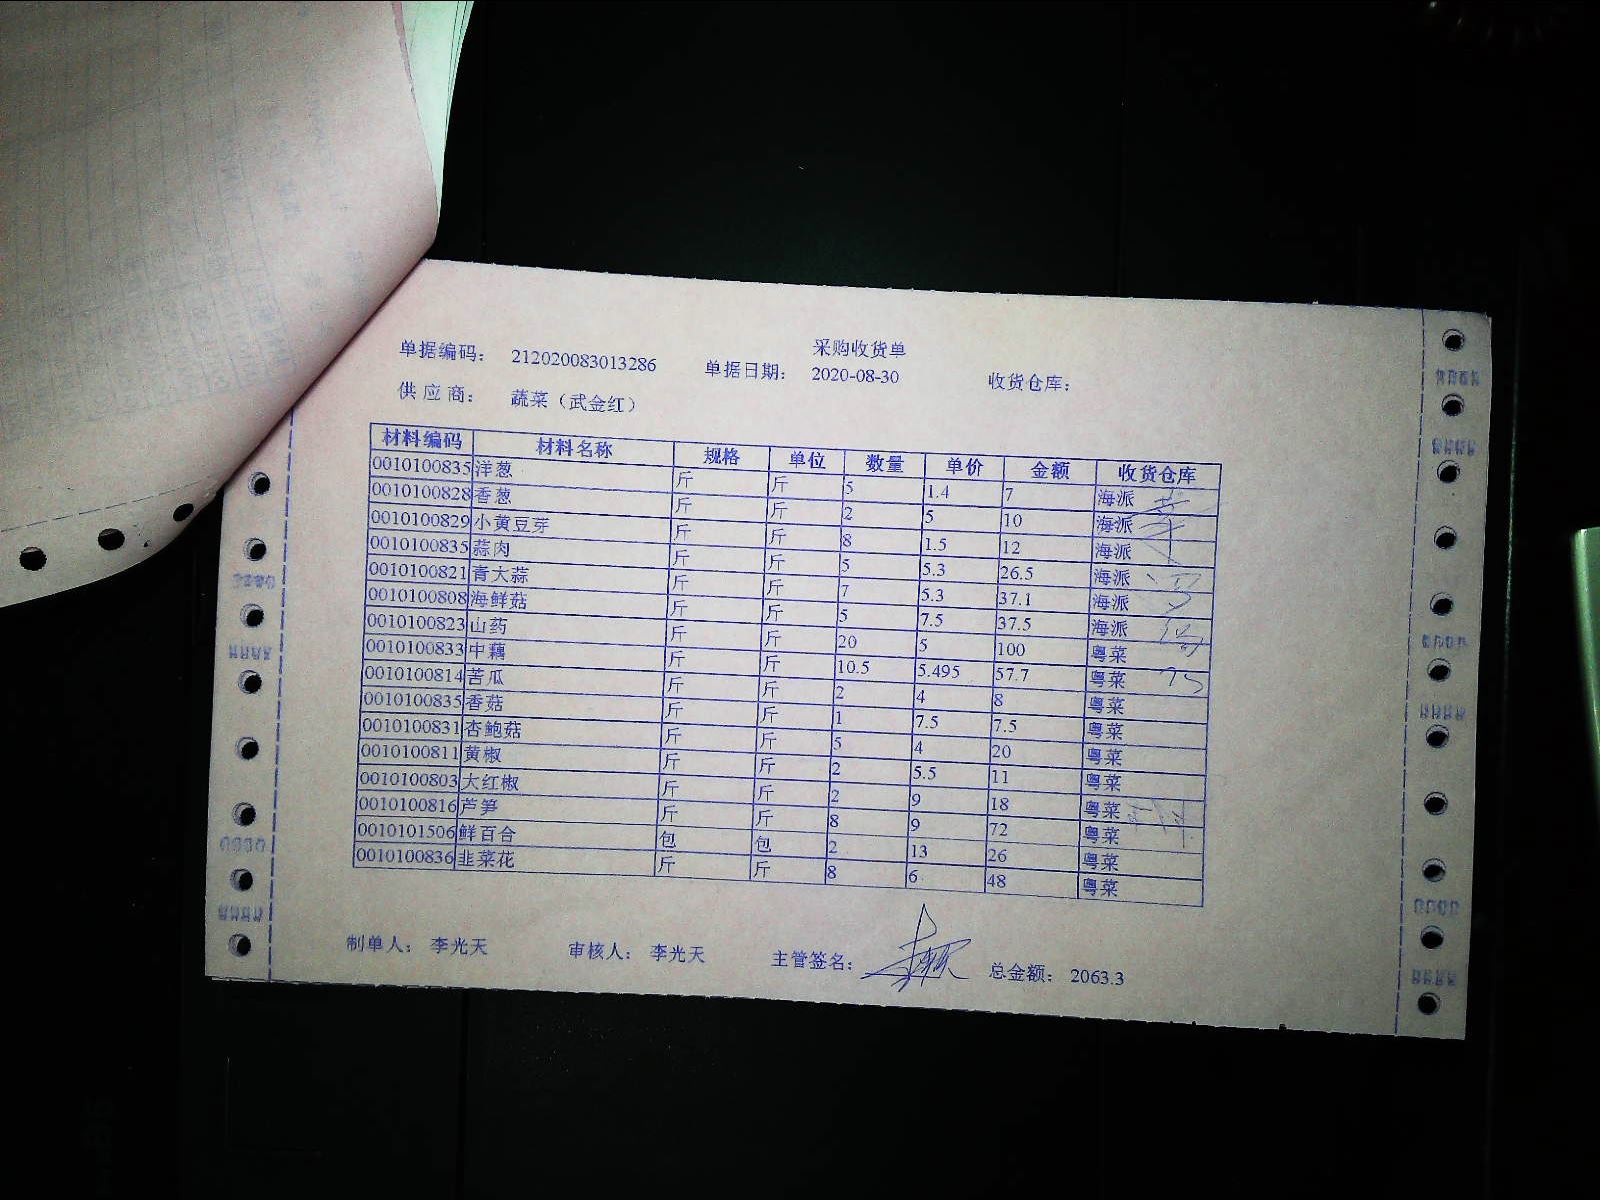 采购收货单
单据编码： 212020083013286 单据日期： 2020-08-30 收货仓库：
供 应 商： 蔬菜（武金红）
材料编码 材料名称 规格 单位 数量 单价 金额 收货仓库
0010100835 洋葱 斤 斤 5 1.4 7 海派
0010100828 香葱 斤 斤 2 5 10 海派
0010100829 小黄豆芽 斤 斤 8 1.5 12 海派
0010100835 蒜肉 斤 斤 5 5.3 26.5 海派
0010100821 青大蒜 斤 斤 7 5.3 37.1 海派
0010100808 海鲜菇 斤 斤 5 7.5 37.5 海派
0010100823 山药 斤 斤 20 5 100 粤菜
0010100833 中藕 斤 斤 10.5 5.495 57.7 粤菜
0010100814 苦瓜 斤 斤 2 4 8 粤菜
0010100835 香菇 斤 斤 1 7.5 7.5 粤菜
0010100831 杏鲍菇 斤 斤 5 4 20 粤菜
0010100811 黄椒 斤 斤 2 5.5 11 粤菜
0010100803 大红椒 斤 斤 2 9 18 粤菜
0010100816 芦笋 斤 斤 8 9 72 粤菜
0010101506 鲜百合 包 包 2 13 26 粤菜
0010100836 韭菜花 斤 斤 8 6 48 粤菜
制单人： 李光天 审核人： 李光天 主管签名： 总金额： 2063.3